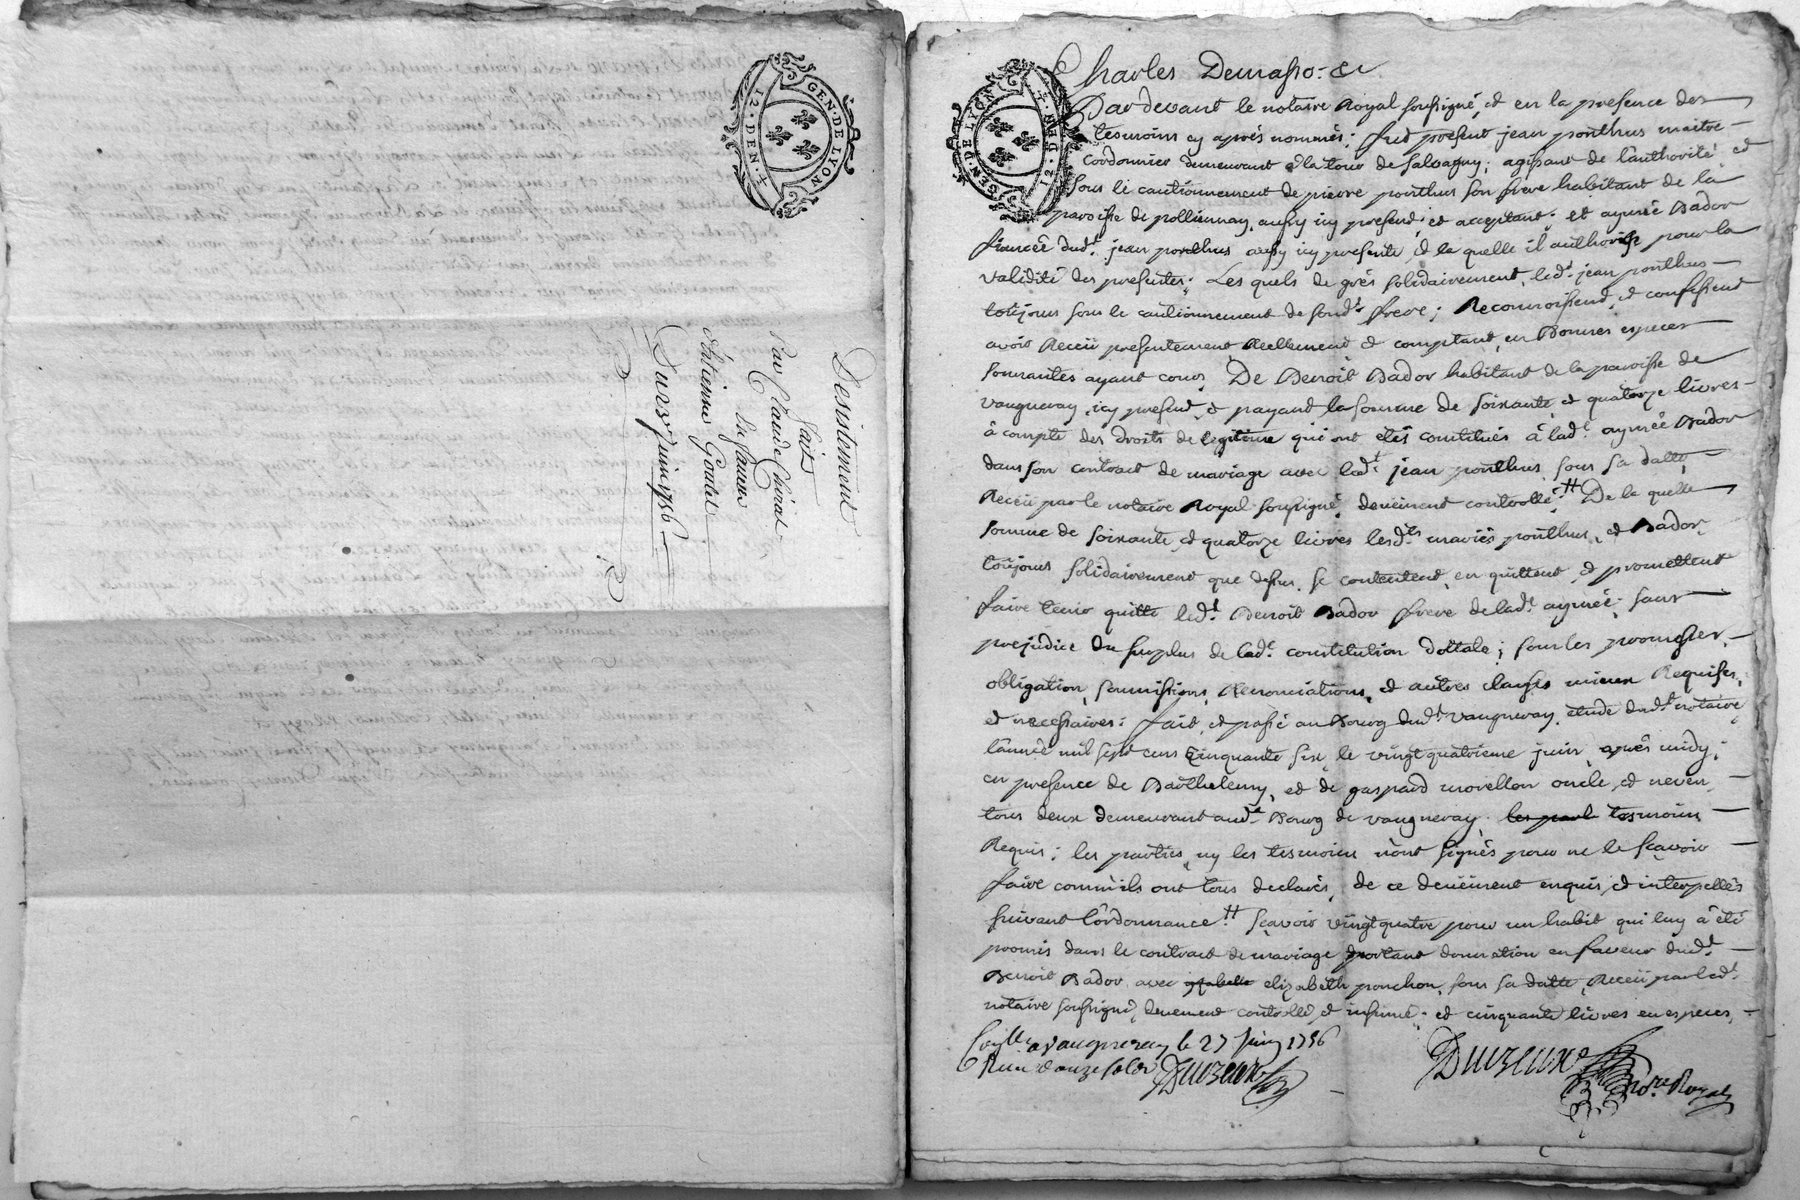 GEN. DE LYON
12. DEN.
Desistament
faits
Par Claude
la famme
Estienne Goutel
Du 23e juin 1756
GEN. DE LYON
12. DEN.
Charles
Pardevant le notaire Royal soussigné, et en la presence des
tesmoins cy aprés nommés; fut present jean ponthus maitre
Cordonnier demeurant a la tour de salvagny; agissant de l'authorité, et
sous le cautionnement de pierre ponthus son frere habitant de la
paroisse de pollionnay, aussy icy present, et acceptant. et aymée Bador
fiancée dudt. jean ponthus aussy icy presente, et la quelle il authorise pour la
validité des presentes; Les quels de grés solidairement, ledt. jean ponthus
toujours sous le cautionnement de sondt. frere; Reconnoissent, et confessent
avoir Receü presentement Reellement et comptant, en Bonnes especes
sonnantes ayant cours, De Benoit Bador habitant de la paroisse de
vaugneray, icy present, et payant la somme de soixante, et quatorze livres
à compte des droits de legitime qui ont étés constitués à ladt. aymée Bador
dans son contract de mariage avec ledt. jean ponthus, sous sa datte,
Receü par le notaire Royal soussigné, deüement controllé. # De la quelle
somme de soixante, et quatorze livres lesdts. mariés ponthus, et Bador,
toujours solidairement que dessus, se contentent, en quittent, et promettent
faire tenir quitte ledt. Benoit Bador frere de ladt. aymée; sans
prejudice du surplus de ladt. constitution dottale; sous les promesses,
obligation, soumissions, Renonciations, et autres clauses mieux Requises,
et necessaires: fait, et passé au Bourg dudt. vaugneray, etude dudt. notaire
l'année mil sept cens Cinquante six, le vingt quatrieme juin, aprés midy;
en presence de Barthelemy, et de gaspard morellon oncle, et neveu,
tous deux demeurant audt. Bourg de vaugneray, les parl tesmoins
Requis; les parties, ny les tesmoins n'ont signés pour ne le sçavoir
faire comm'ils ont tous declarés, de ce deüement enquis, et interpellés
suivant l'ordonnance. # sçavoir vingt quatre pour un habit qui luy à été
promis dans le contract de mariage portant donnation en faveur dudt.
Benoit Bador avec elizabeth ponchon, sous sa datte, Receü par ledt.
notaire soussigné, deuement controllé, et insinué; et cinquante livres en especes,
a vaugneray le 27 juin 1756
Duvzeux
Duvzeux
nore. Royal